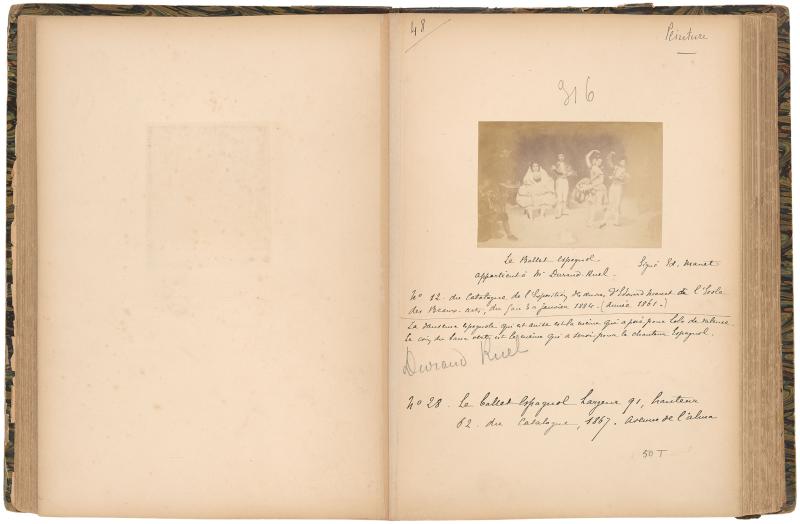 48
Peinture
316
Le Ballet espagnol. Signé Ed. Manet
appartient à Mr Durand-Ruel.
No 12 du Catalogue de l'Exposition des œuvres d'Edouard Manet de l'École
des Beaux-arts, du 5 au 3 janvier 1884. (année 1861.)
La danseuse espagnole qui est assise est la même qui a posé pour Lola de Valence.
Le coin du banc vert, est le même qui a servi pour le chanteur Espagnol.
Durand Ruel
No 28. Le ballet Espagnol largeur 91, hauteur
62. du Catalogue, 1867. Avenue de l'alma
50 T